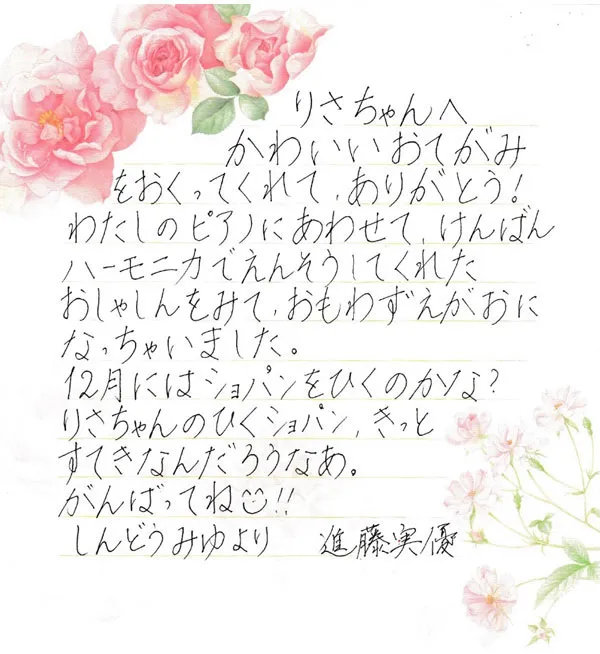 りさちゃんへ
かわいいおてがみ
をおくってくれて、ありがとう!
わたしのピアノにあわせて、けんばん
ハーモニカでえんそうしてくれた
おしゃしんをみて、おもわずえがおに
なっちゃいました。
12月にはショパンをひくのかな?
りさちゃんのひくショパン、きっと
すてきなんだろうなあ。
がんばってね☺!!
しんどうみゆより 進藤実優